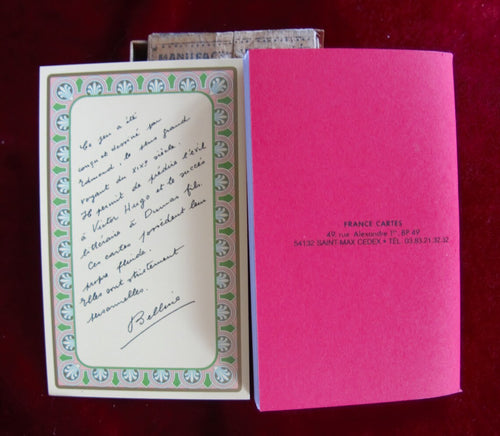 MANUFAC
Ce jeu a été
conçu et dessiné par
Edmond, le plus grand
voyant du XIXe siècle.
Il permit de prédire l'exil
à Victor Hugo et le succès
littéraire à Dumas fils.
Ces cartes possèdent leur
propre fluide.
Elles sont strictement
personnelles.
Belline
FRANCE CARTES
49, rue Alexandre 1er, BP 49
54132 SAINT-MAX CEDEX • TÉL. 03.83.21.32.32